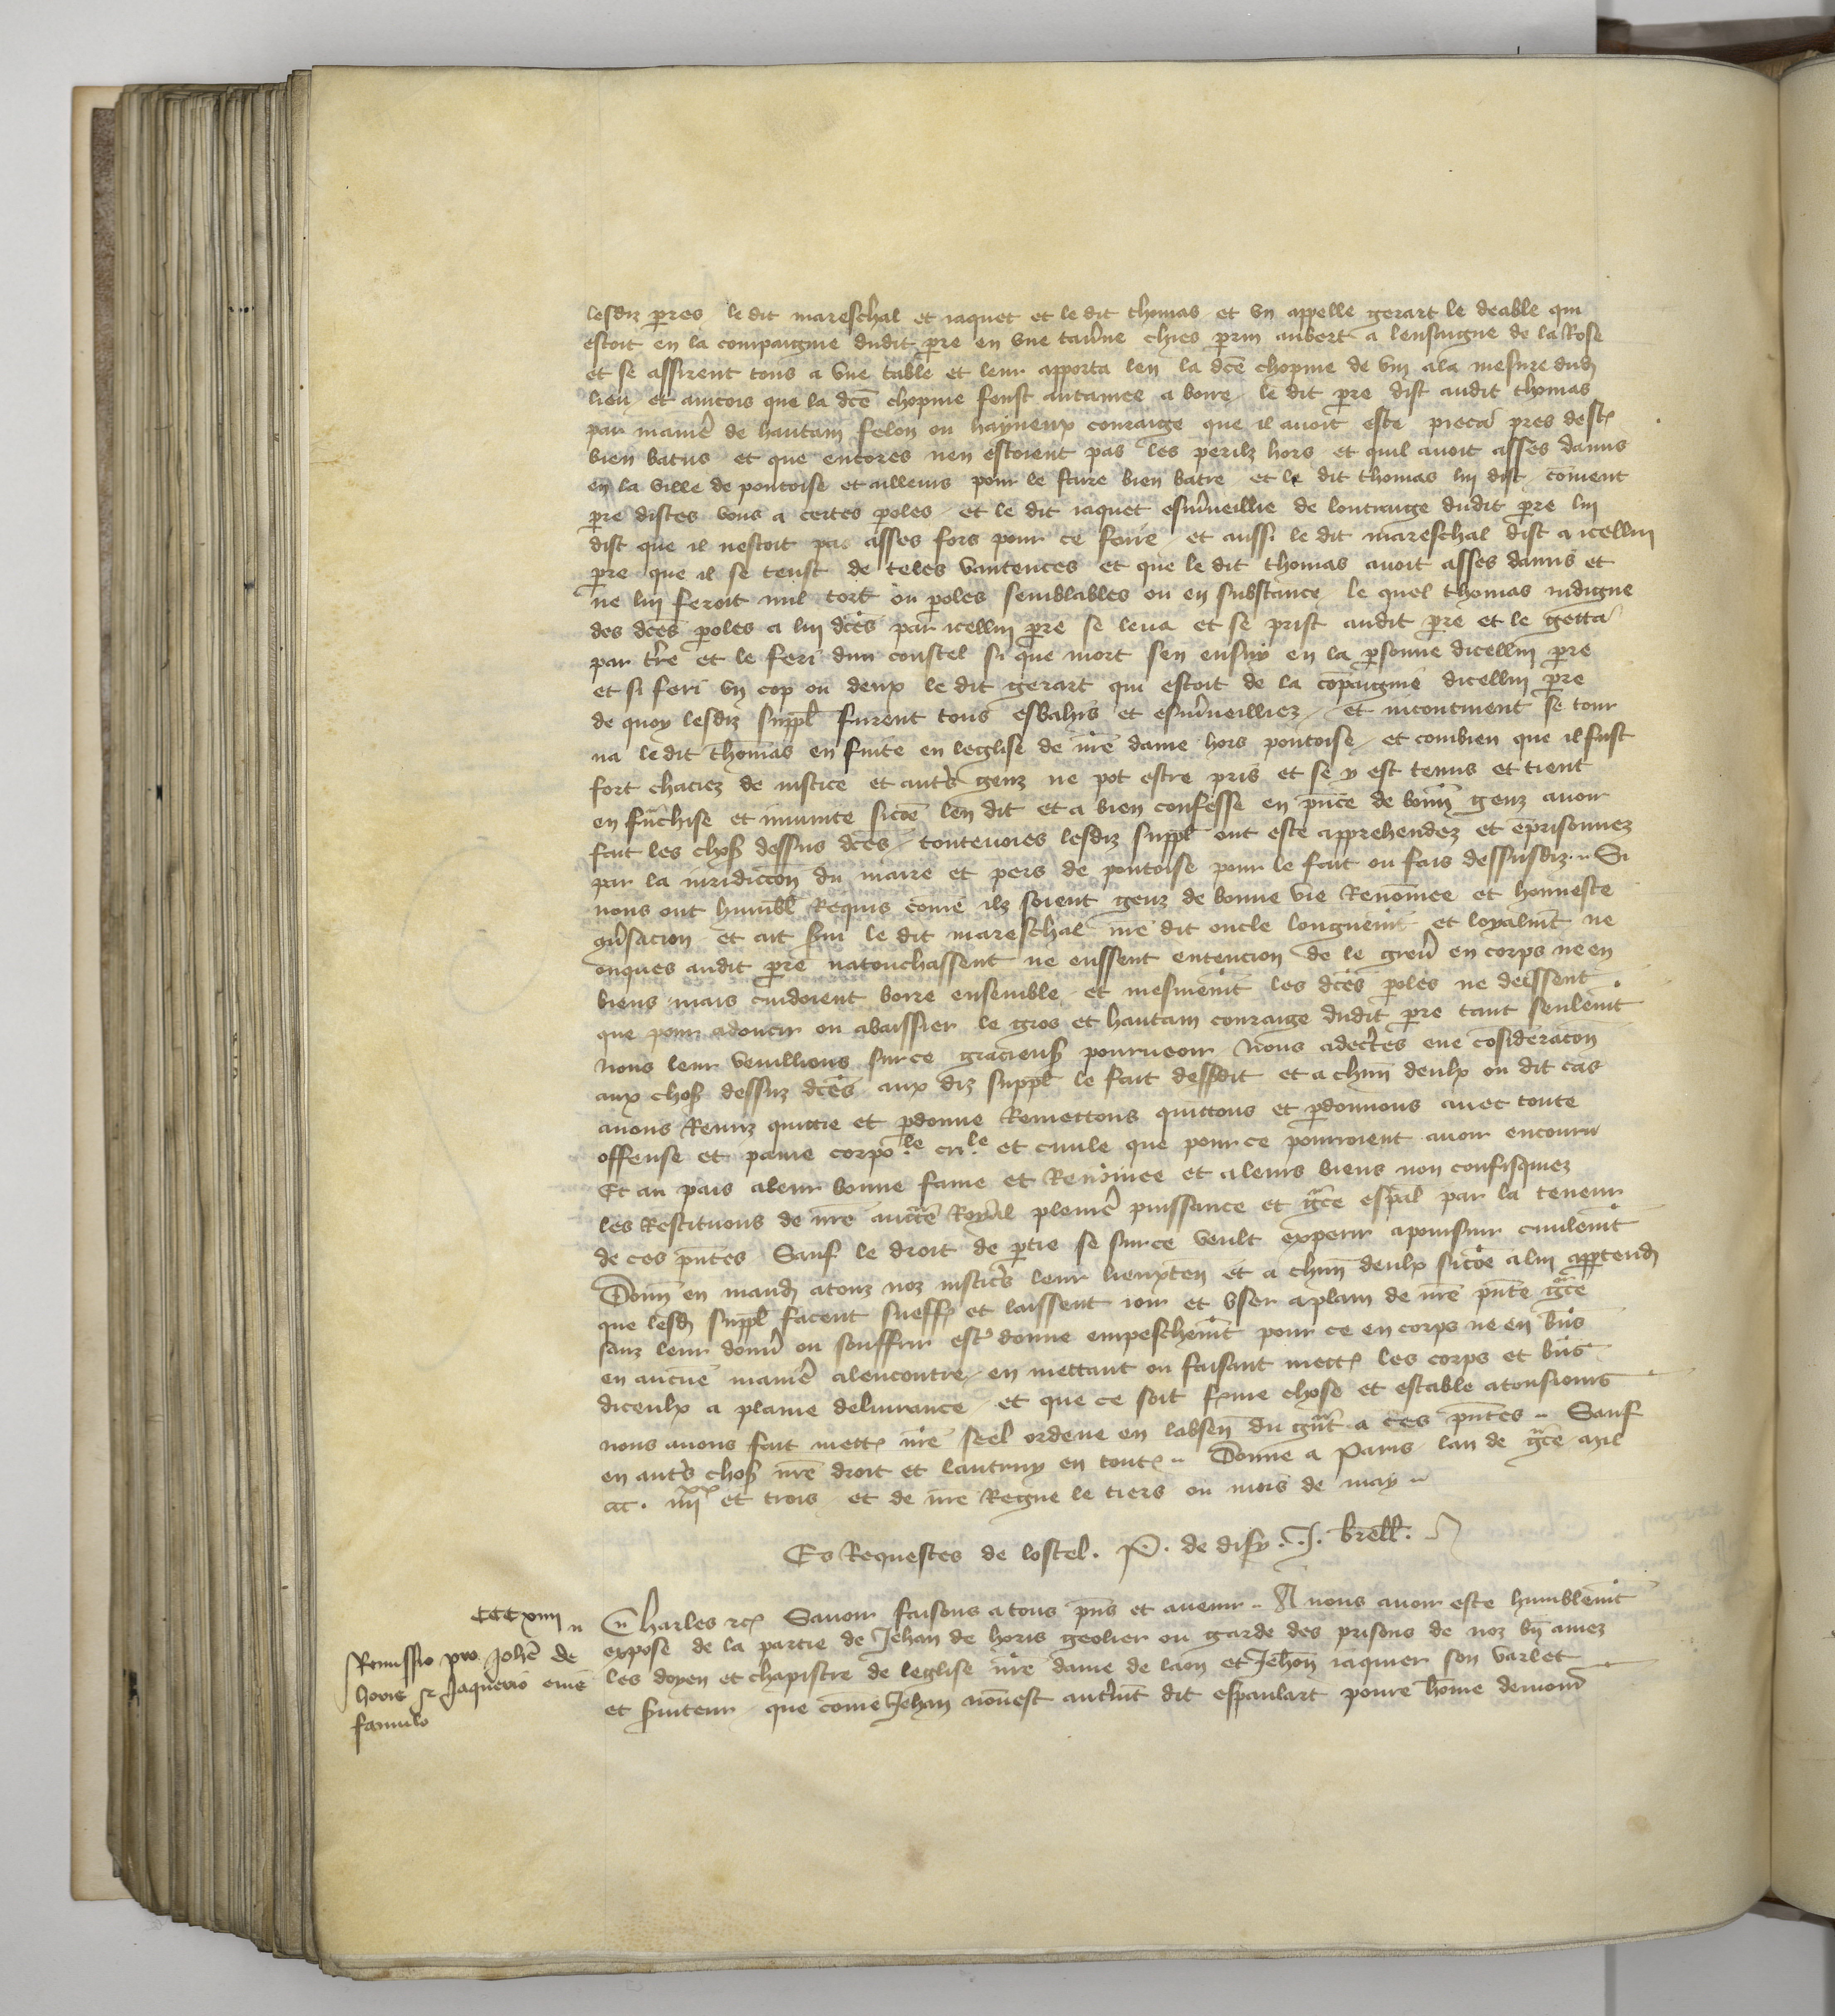 lesdiz pres le dit mareschal et iaquet et le dit thomas et vn appelle gerart le deable qui
estoit en la compaignie dudit pre en vne taune chies prin aubert a lensaigne de la Rose
et se assirent tous a vne table et leur apporta len la dce chopine de vin a la mesure dud
lieu et aincois que la dce chopine feust entamee a boire le dit pre dist audit thomas
par manie de hautain felon ou hayneux couraige que il auoit este pieca pres destr
bien batus et que encores nen estoient pas les perilz hors et quil auoit asses damis
en la ville de pontoise et ailleurs pour le faire bien batre et le dit thomas lui dist coment
pre distes vous a certes poles et le dit iaquet esmueillie de loutraige dudit pre lui
dist que il nestoit pas asses fors pour ce feire et aussi le dit mareschal dist a icellui
pre que il se teust de teles vantences et que le dit thomas auoit asses damis et
ne lui feroit nul tort ou poles semblables ou en substance le quel thomas indigne
des dces poles a lui dces par icellui pre se leua et se prist audit pre et le getta
par tre et le feri dun coustel si que mort sen ensuy en la psonne dicellui pre
et si feri vn cop ou deux le dit gerart qui estoit de la copaignie dicellui pre
de quoy lesdiz suppl furent tous esbahis et esmueilliez et incontinent se tour
na ledit thomas en fuite en leglise de nre dame hors pontoise et combien que il fust
fort chaciez de iustice et autrs genz ne pot estre pris et se y est tenus et tient
en frnchise et imunite sicoe len dit et a bien confesse en pnce de bonn genz auoir
fait les chos dessus dces toutevoies lesdiz suppl ont este apprehendez et eprisonnez
par la iuridiccon du maire et pers de pontoise pour le fait ou fais dessusdiz Si
nous ont humbl Requis come ilz soient genz de bonne vie Renommee et honneste
conusacion et ait sui le dit mareschal nre dit oncle longuemt et loyalmt ne
onques audit pre natouchassent ne eussent entencion de le greu en corps ne en
biens mais cuidoient boire ensemble et mesmemt les dces poles ne deissent
que pour adoucir ou abaissier le gros et hautain couraige dudit pre tant seulemt
Nous leur veuillions sur ce gracieus pourueoir Nous adecrtes eue cosideracon
aux chos dessuz dces aux diz suppl le fait dessdit et a chun deulx ou dit cas
auons Remiz quittie et pdonne Remettons quittons et pdonnons auec toute
offense et paine corpole crile et ciuile que pour ce pourroient auoir encouru
Et au pais a leur bonne fame et Renomee et a leurs biens non confisquez
les Restituons de nre aucte Royal plenie puissance et gce espal par la teneur
de ces pntes Sauf le droit de ptie se sur ce veult experir a poursuir ciuilemt
Donn en mand a touz noz iusticrs leur lieuxten et a chun deulx sicoe a lui apptend
que lesd suppl facent sueffr et laissent ioir et vser a plain de nre pnte gce
sanz leur donn ou souffrir estr donne empeschemt pour ce en corps ne en bns
en aucue manie alencontre en mettant ou faisant mettr les corps et bns
diceulx a plaine deliurance et que ce soit fme chose et estable a tousiours
nous auons fait mettr nre seel ordene en labsen du gnt a ces pntes Sauf
en autrs chos nre droit et lautruy en toutr Donne a Paris lan de gce mil
ccc. iiiixx et trois et de nre Regne le tiers ou mois de may
Es Requestes de lostel. P. de disy. J. brell.
CCCxiiii
Remissio pro Johe de
horis & Jaquerio eius
famulo
Charles etc Sauoir faisons a tous pns et auenir A nous auoir este humblemt
expose de la partie de Jehan de horis geolier ou garde des prisons de noz bn amez
les doyen et chapistre de leglise nre dame de laon et Jehan iaquier son varlet
et suiteur que come Jehan nonnest autmt dit espaulart poure home demour